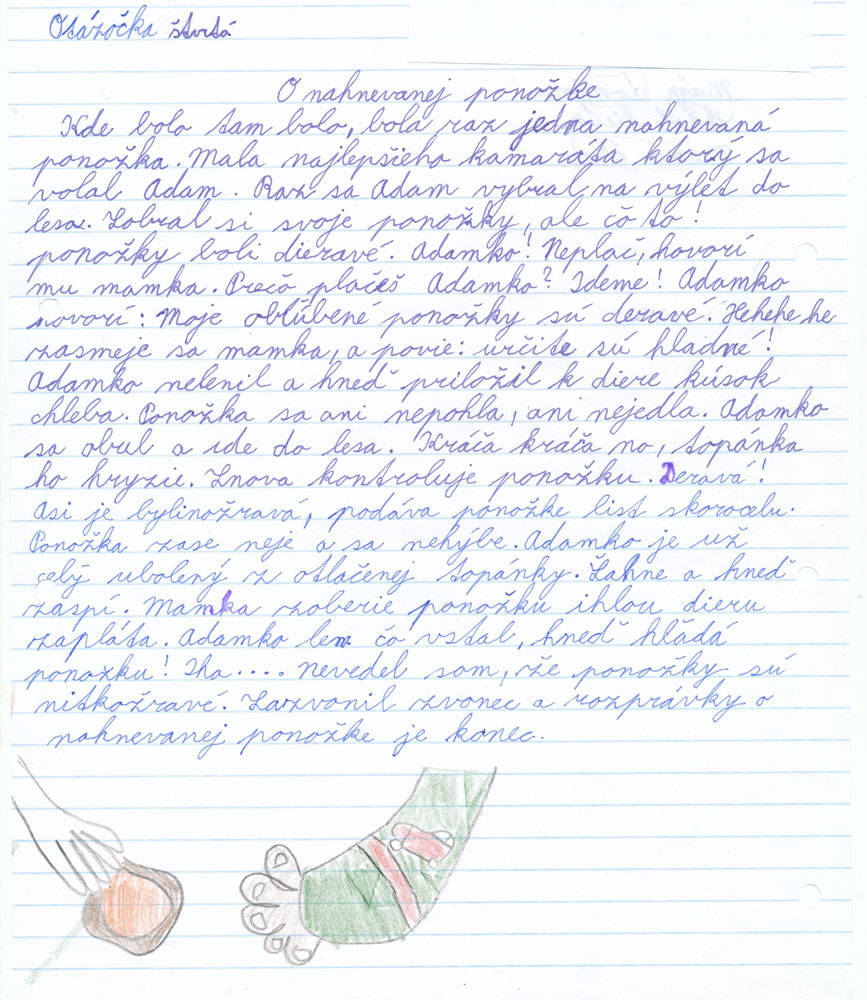 Otázočka štvrtá
O nahnevanej ponožke
Kde bolo tam bolo, bola raz jedna nahnevaná
ponožka. Mala najlepšieho kamaráta ktorý sa
volal Adam. Raz sa Adam vybral na výlet do
lesa. Zobral si svoje ponožky, ale čo to!
ponožky boli dieravé. Adamko! Neplač, hovorí
mu mamka. Prečo plačeš Adamko? Ideme! Adamko
hovorí: Moje obľúbené ponožky sú deravé. Hehehe he
zasmeje sa mamka, a povie: určite sú hladné!
Adamko nelenil a hneď priložil k diere kúsok
chleba. Ponožka sa ani nepohla, ani nejedla. Adamko
sa obul a ide do lesa. Kráča kráča no, topánka
ho hryzie. Znova kontroluje ponožku. Deravá!
Asi je bylinožravá, podáva ponožke list skorocelu.
Ponožka zase neje a sa nehýbe. Adamko je už
celý ubolený z otlačenej topánky. Ľahne a hneď
zaspí. Mamka zoberie ponožku ihlou dieru
zapláta. Adamko len čo vstal, hneď hľadá
ponožku! Iha.... nevedel som, že ponožky sú
nitkožravé. Zazvonil zvonec a rozprávky o
nahnevanej ponožke je konec.